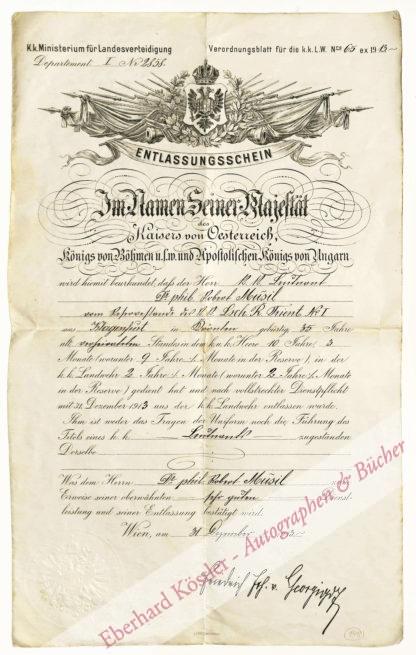 K.k. Ministerium für Landesverteidigung
Verordnungsblatt für die k.k. L.W. Nº 65 ex 1913
Departement I Nº 2858
ENTLASSUNGSSCHEIN
Im Namen Seiner Majestät
des
Kaisers von Oesterreich,
Königs von Böhmen u.s.w. und Apostolischen Königs von Ungarn
wird hiemit beurkundet, daß der Herr K.K. Leutnant
Dr phil. Robert Musil
vom
aus Klagenfurt in Kärnten gebürtig 35 Jahre
alt, verheirateten Standes in dem k.u.k. Heere 10 Jahre 3
Monate (worunter 9 Jahre Monate in der Reserve), in der
k.k. Landwehr 2 Jahre Monate (worunter 2 Jahre Monate
in der Reserve) gedient hat und nach vollstreckter Dienstpflicht
mit 31. Dezember 1913 aus der k.k. Landwehr entlassen wurde.
Ihm ist weder das Tragen der Uniform noch die Führung des
Titels eines k.k. Leutnants zugestanden
Derselbe
Was dem Herrn Dr phil. Robert Musil zum
Erweise seiner obenwähnten sehr guten Dienst-
leistung und seiner Entlassung bestätigt wird.
Wien, am 31. Dezember 1913
Eberhard Köstler - Autographen & Bücher